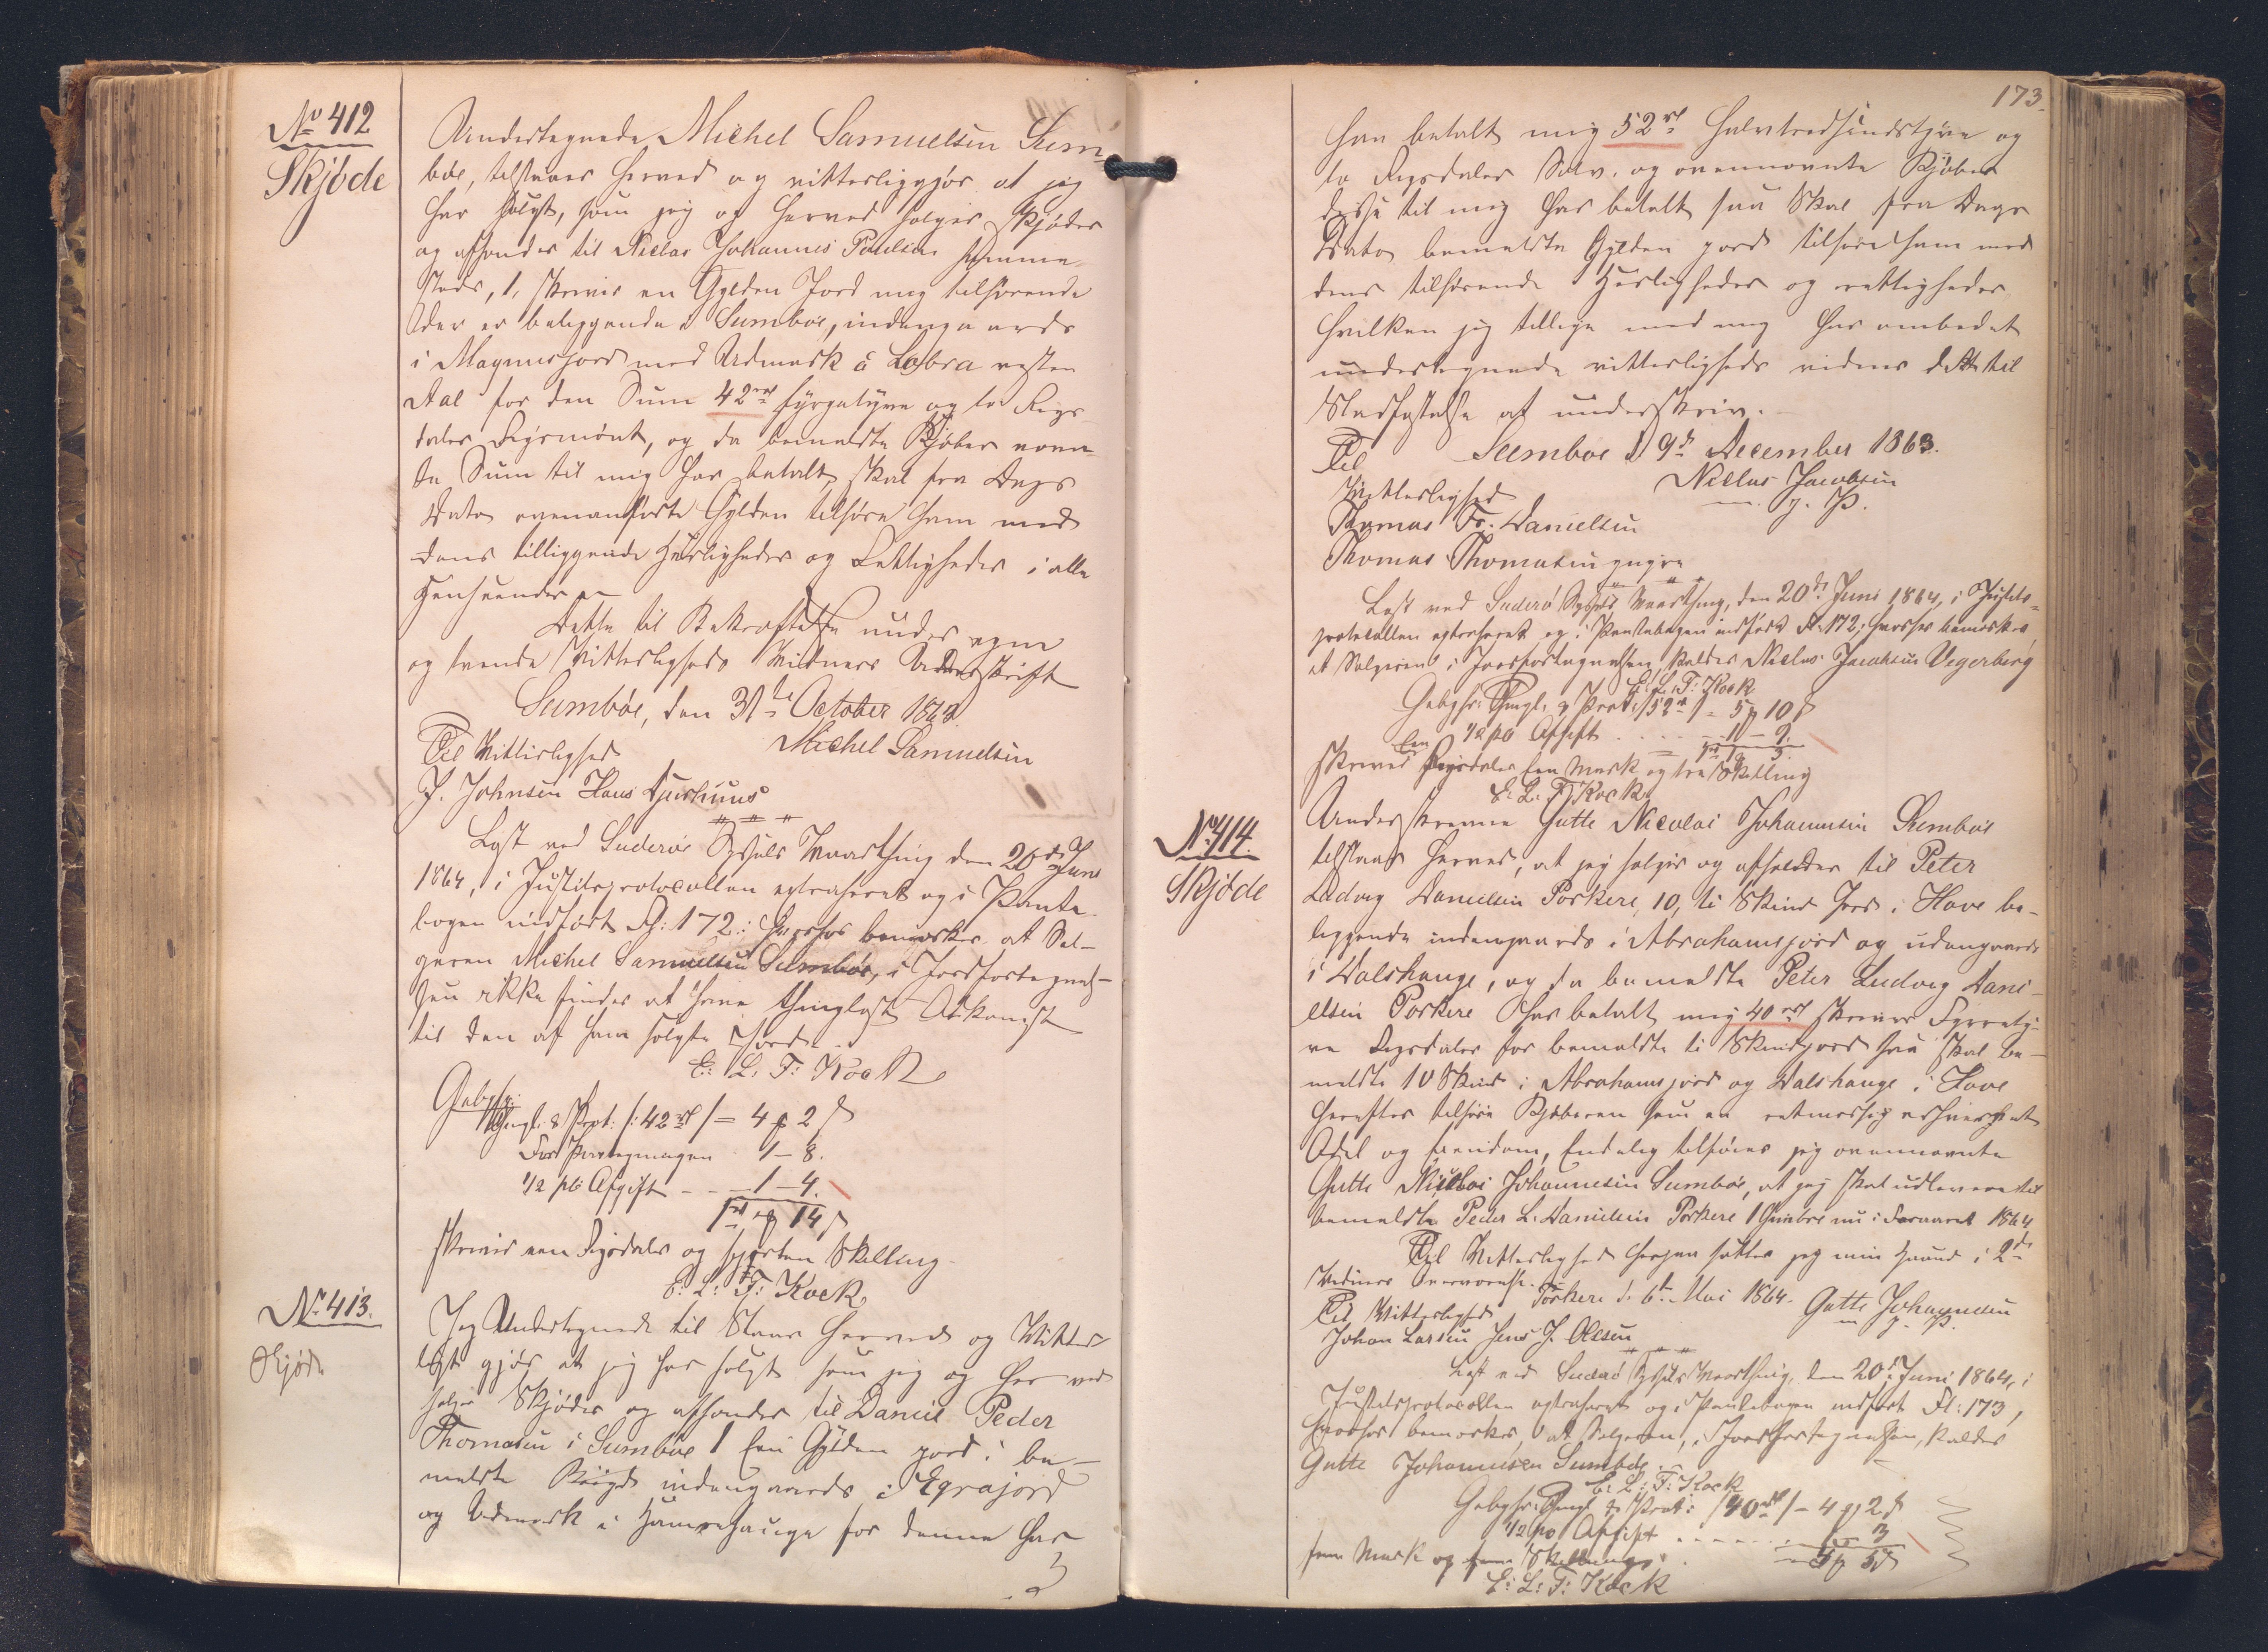 No 412
Skjöde
Undertegnede Michel Samuelsen Sum-
böe, tilstaaer herved og vitterliggjör at jeg
har solgt, som jeg og herved sælger skjöder
og afhender til Niclas Johannes Poulsen samme-
steds, 1, skriver en Gylden Jord mig tilhörende
der er beliggende i Sumböe, indengaards
i Magnusjord med Udmark i Lobra vesten
Aal for den Sum 42 rd fyrgetyve og to Rigs-
daler Rigsmönt, og da bemeldte Kjöber nevn-
te Sum til mig har betalt, skal fra Dags
Dato ovenanförte Gylden tilhöre ham med
dens tilliggende Herligheder og Rettigheder i alle
Henseender
Dette til Bekræftelse under egen
og tvende Vitterligheds Vidners Underskrift
Sumböe, den 31te October 1863.
Michel Samuelsen
Til Vitterlighed
J. Johnsen Hans Djurhuus
Læst ved Suderöe Syssels Vaarthing den 20de Juni
1864, i Justitsprotocollen extraheret og i Pante-
bogen indfört Fl: 172; hvorhos bemærkes at Sæl-
geren Michel Samuelsen Sumböe, i Jordfortegnel-
sen ikke findes at have thinglæst Adkomst
til den af ham solgte Jord.
E: L: F: Kock
Gebyhr:
Thingl: & Prot: /: 42 rd / = 4 ₰ 2 ß
For Paategningen 1 – 8.
1/2 pCt Afgift – – 1 – 4.
1 rd " ₰ 14 ß
skriver een Rigsdaler og fjorten Skilling
E: L: F: Kock
No 413.
Skjöde
Jeg Undertegnede til Staaer herved og Vitter-
ligt gjör at jeg har solgt som jeg og her ved
sælger Skjöder og afhender til Daniel Peder
Thomasen i Sumböe 1 Een Gylden jord i be-
meldte Böigd indengaards i Egrajord
og Udmark i Hamrehauge for denne har
173.
han betalt mig 52 rd halvtredsindstyve og
to Rigsdaler Sølv. og ovennævnte Kjöber
disse til mig har betalt saa Skal fra Dags
Dato bemeldte Gylden jord tilhöre ham med
dens tilhörende Herligheder og rettigheder
hvilken jeg tillige med mig har ombedet
undertegnede vitterligheds vidner dette til
Stadfæstelse at underskriv.
Sumboe d 9de December 1863.
Til
Vitterlighed
Niclas Jacobsen
m. f. P.
Thomas Fr. Danielsen
Thomas Thomasen yngre
Læst ved Suderö Syssels Vaarthing, den 20de Juni 1864, i Justits-
protocollen extraheret og i Pantebogen indfört Fl: 172; hvorhos bemærkes,
at Sælgeren i Jordfortegnelsen kaldes Niclas Jacobsen Vegerberg
E: L: F: Kock
Gebyhr: Thingl: & Prot: / 52 rd / = 5 ₰ 10 ß
1/2 pCt Afgift . . . . 1 – 9.
1 rd 1 ₰ 3.
skriver Een Rigsdaler Een Mark og tre Skilling
E: L: F: Kock
No 414.
Skjöde
Underskrevne Gutte Nicolai Johannesen Sumböe
tilstaaer herved, at jeg sælger og afhender til Peter
Ludvig Danielsen Porkere, 10, ti Skind Jord i Hove be-
liggende indengaards i Abrahamsjord og udengaards
i Dalshauge, og da bemeldte Peter Ludvig Dani-
elsen Porkere har betalt mig 40 rd skriver Fyrrety-
ve Rigsdaler for bemeldte ti Skindjord saa skal be-
meldte 10 Skind i Abrahamsjord og Dalshauge i Hove
herefter tilhöre Kjöberen som en retmæssig erhvervet
Odel og Eiendom, Endelig tilföier jeg ovennævnte
Gutte Nicolai Johannesen Sumböe, at jeg skal udlevere til
bemeldte Peder L. Danielsen Porkere 1 Gimber nu i Foraaret 1864
Til Vitterlighed herpaa sætter jeg min Haand i 2de
Vidners Overværelse.
Porkere d. 6te Mai 1864.
Gutte Johannesen
m. f. P.
Til Vitterlighed
Johan Larsen Jens J. Olesen
Læst ved Suderö Syssels Vaarthing, den 20de Juni 1864, i
Justitsprotocollen extraheret og i Pantebogen indfört Fl: 173,
hvorhos bemærkes, at Sælgeren, i Jordfortegnelsen, kaldes
Gutte Johannesen Sumböe.
E: L: F: Kock
Gebyhr: Thingl: & Prot: / 40 rd / – 4 ₰ 2 ß
1/2 pCt Afgift . . . . . . 1 – 3
5 ₰ 5 ß
fem Mark og fem Skilling
E: L: F: Kock